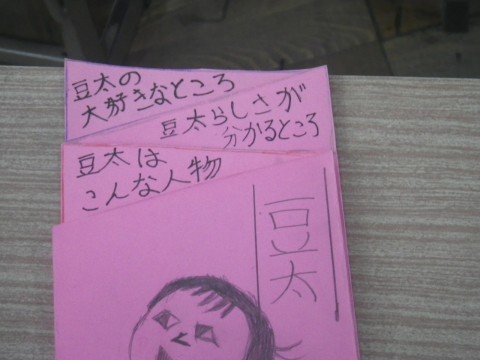 豆太の
大好きなところ
豆太らしさが
分かるところ
豆太は
こんな人物
豆太